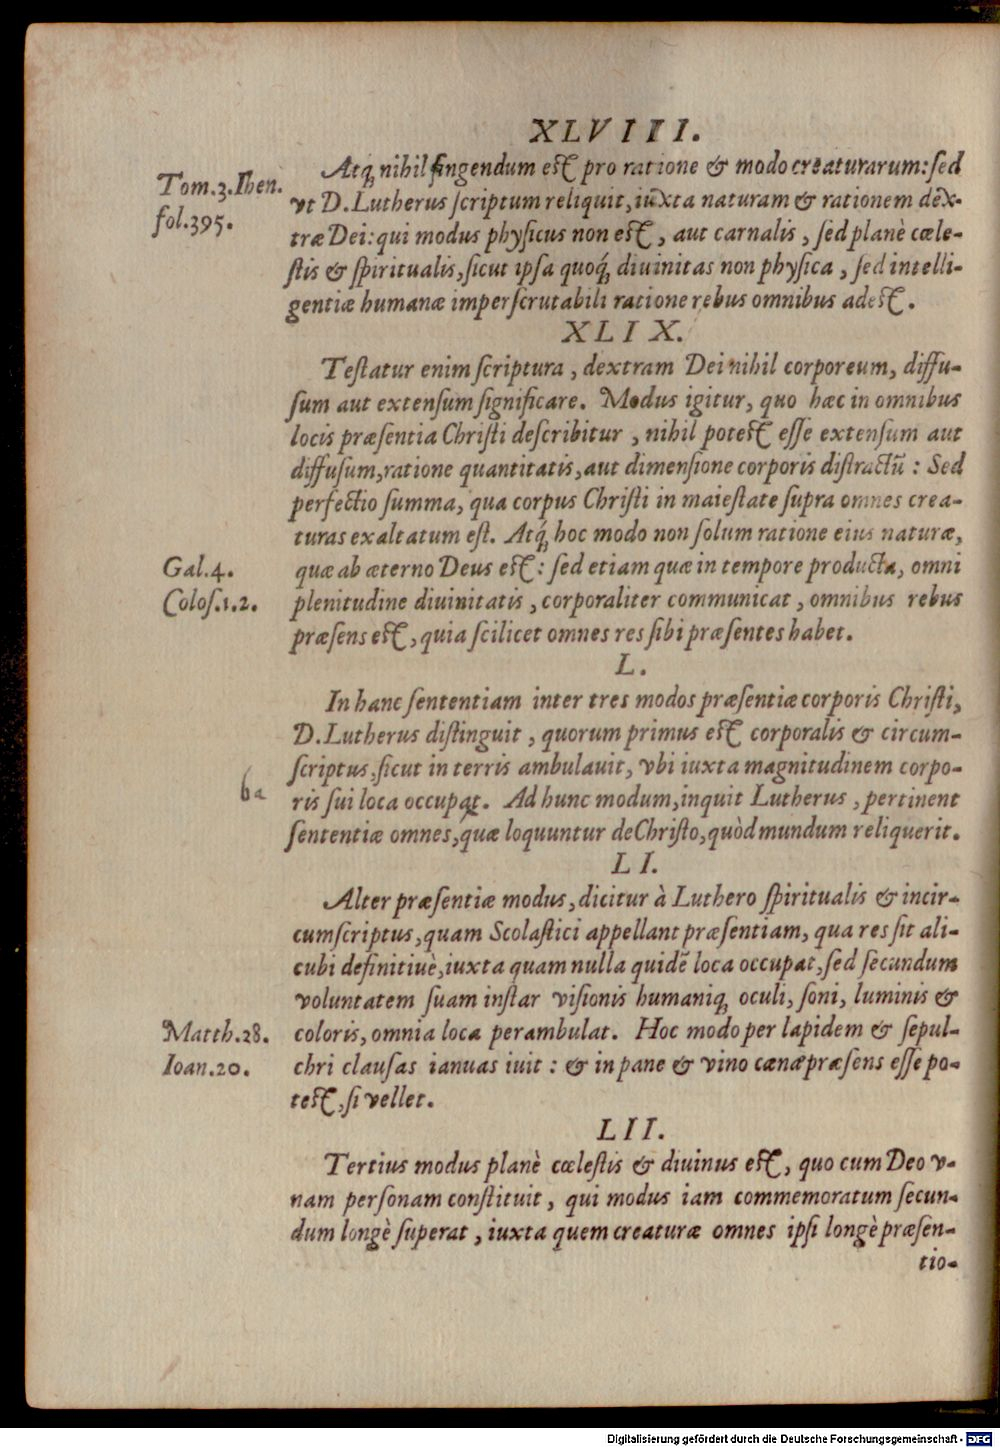 XLVIII.
Atq́ nihil fingendum est pro ratione & modo creaturarum: sed
Tom.3. Ihen.
vt D. Lutherus scriptum reliquit, iuxta naturam & rationem dex-
fol.395.
træ Dei: qui modus physicus non est, aut carnalis, sed planè cœle-
stis & spiritualis, sicut ipsa quoq́ diuinitas non physica, sed intelli-
gentiæ humanæ imperscrutabili ratione rebus omnibus adest.
XLIX.
Testatur enim scriptura, dextram Dei nihil corporeum, diffu-
sum aut extensum significare. Modus igitur, quo hæc in omnibus
locis præsentia Christi describitur, nihil potest esse extensum aut
diffusum, ratione quantitatis, aut dimensione corporis distractū: Sed
perfectio summa, qua corpus Christi in maiestate supra omnes crea-
turas exaltatum est. Atq́ hoc modo non solum ratione eius naturæ,
Gal.4.
quæ ab æterno Deus est: sed etiam quæ in tempore producta, omni
Colos.1.2.
plenitudine diuinitatis, corporaliter communicat, omnibus rebus
præsens est, quia scilicet omnes res sibi præsentes habet.
L.
In hanc sententiam inter tres modos præsentiæ corporis Christi,
D. Lutherus distinguit, quorum primus est corporalis & circum-
scriptus, sicut in terris ambulauit, vbi iuxta magnitudinem corpo-
6a
ris sui loca occupat. Ad hunc modum, inquit Lutherus, pertinent
sententiæ omnes, quæ loquuntur de Christo, quòd mundum reliquerit.
LI.
Alter præsentiæ modus, dicitur à Luthero spiritualis & incir-
cumscriptus, quam Scolastici appellant præsentiam, qua res sit ali-
cubi definitiuè, iuxta quam nulla quidē loca occupat, sed secundum
voluntatem suam instar visionis humaniq́ oculi, soni, luminis &
Matth.28.
coloris, omnia loca perambulat. Hoc modo per lapidem & sepul-
Ioan.20.
chri clausas ianuas iuit: & in pane & vino cænæ præsens esse po-
test, si vellet.
LII.
Tertius modus planè cœlestis & diuinus est, quo cum Deo v-
nam personam constituit, qui modus iam commemoratum secun-
dum longè superat, iuxta quem creaturæ omnes ipsi longè præsen-
tio-
Digitalisierung gefördert durch die Deutsche Forschungsgemeinschaft - DFG